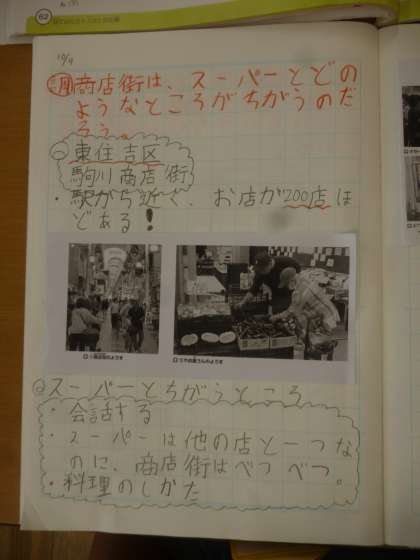 62
10/9
問 商店街は、スーパーとどの
ようなところがちがうのだ
ろう。
東住吉区
駒川商店街
・駅がら近く、お店が200店ほ
どある!
② スーパーとちがうところ
・会話する
・スーパーは他の店と一つな
のに、商店街はべつべつ。
・料理のしかた